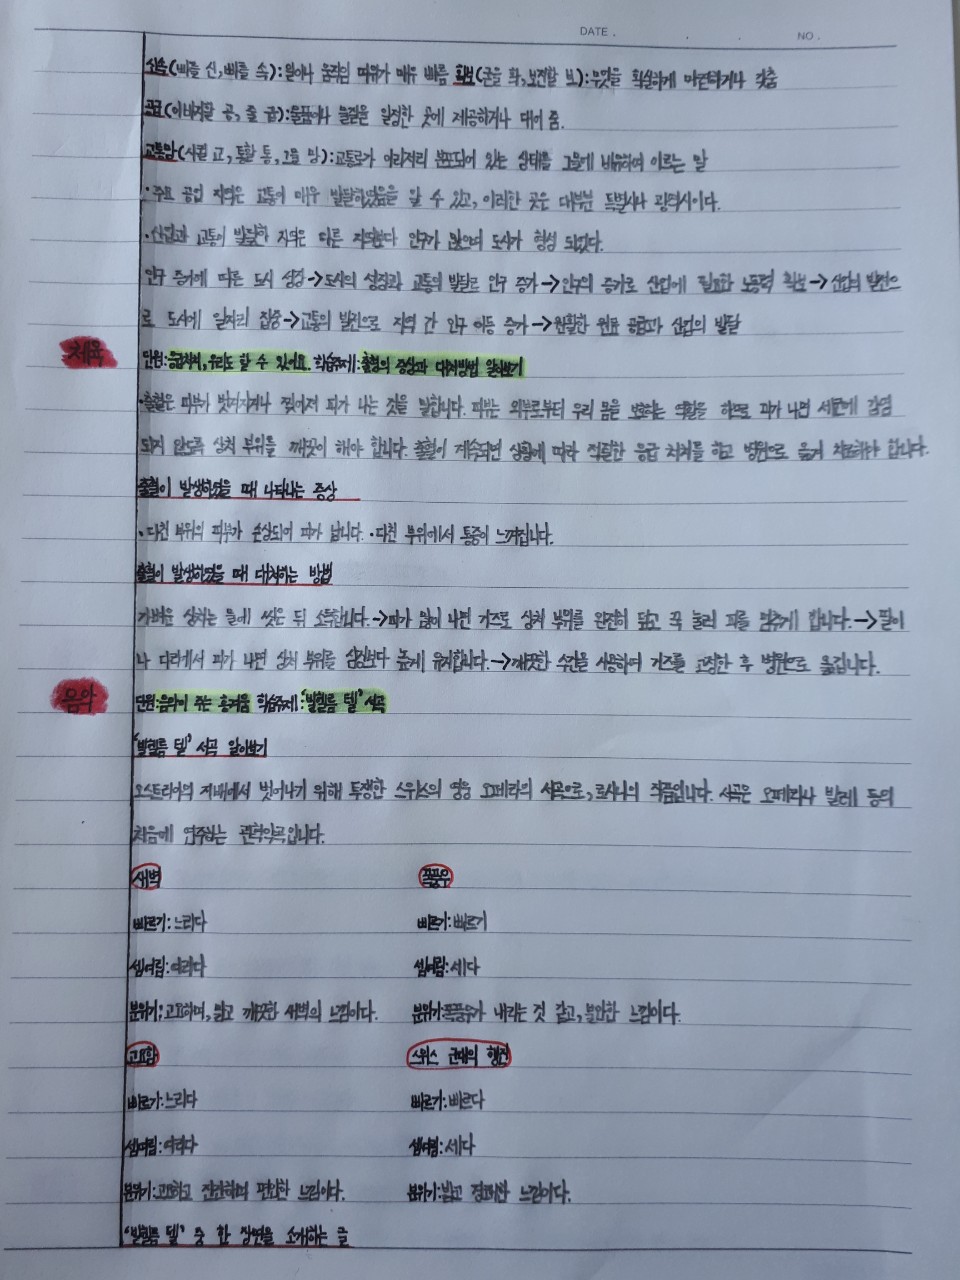 DATE . . . NO .
신속(빠를 신, 빠를 속): 일이나 움직임 따위가 매우 빠름 확보(굳을 확, 보전할 보): 무엇을 확실하게 마련하거나 갖춤
공급(이바지할 공, 줄 급): 물품이나 물건을 일정한 곳에 제공하거나 대어 줌.
교통망(사귈 교, 통할 통, 그물 망): 교통로가 이리저리 분포되어 있는 상태를 그물에 비유하여 이르는 말
·주요 공업 지역은 교통이 매우 발달하였음을 알 수 있고, 이러한 곳은 대부분 특별시나 광역시이다.
·산업과 교통이 발달한 지역은 다른 지역보다 인구가 많으며 도시가 형성 되었다.
인구 증가에 따른 도시 성장→도시의 성장과 교통의 발달로 인구 증가→인구의 증가로 산업에 필요한 노동력 확보→산업의 발전으
로 도시에 일자리 집중→교통의 발전으로 지역 간 인구 이동 증가→원활한 원료 공급과 산업의 발달
체육 단원: 응급처치, 우리도 할 수 있어요. 학습주제: 출혈의 증상과 대처방법 알아보기
·출혈은 피부가 벗겨지거나 찢어져 피가 나는 것을 말합니다. 피부는 외부로부터 우리 몸을 보호하는 역할을 하므로 피가 나면 세균에 감염
되지 않도록 상처 부위를 깨끗이 해야 합니다. 출혈이 계속되면 상황에 따라 적절한 응급 처치를 하고 병원으로 옮겨 치료해야 합니다.
출혈이 발생하였을 때 나타나는 증상
·다친 부위의 피부가 손상되어 피가 납니다. ·다친 부위에서 통증이 느껴집니다.
출혈이 발생하였을 때 대처하는 방법
가벼운 상처는 물에 씻은 뒤 소독합니다.→피가 많이 나면 거즈로 상처 부위를 완전히 덮고 꼭 눌러 피를 멈추게 합니다.→팔이
나 다리에서 피가 나면 상처 부위를 심장보다 높게 유지합니다.→깨끗한 수건을 사용하여 거즈를 고정한 후 병원으로 옮깁니다.
음악 단원: 음악이 주는 즐거움 학습주제: '빌헬름 텔' 서곡
'빌헬름 텔' 서곡 알아보기
오스트리아의 지배에서 벗어나기 위해 투쟁한 스위스의 영웅 오페라의 서곡으로, 로시니의 작품입니다. 서곡은 오페라나 발레 등의
처음에 연주되는 관현악곡입니다.
새벽 폭풍우
빠르기: 느리다 빠르기: 빠르기
셈여림: 여리다 셈여림: 세다
분위기: 고요하며, 맑고 깨끗한 새벽의 느낌이다. 분위기: 폭풍우가 내리는 것 같고, 불안한 느낌이다.
고요함 스위스 군대의 행진
빠르기: 느리다 빠르기: 빠르다
셈여림: 여리다 셈여림: 세다
분위기: 고요하고 잔잔하며 편안한 느낌이다. 분위기: 밝고 경쾌한 느낌이다.
'빌헬름 텔' 중 한 장면을 소개하는 글